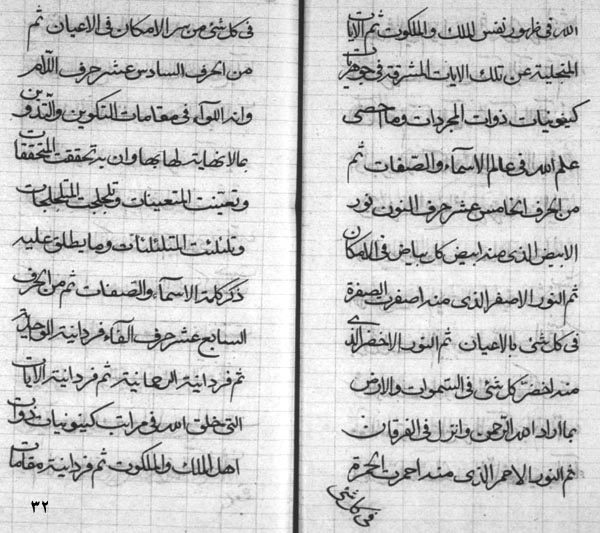 الله فی ظهور نفس الملك و الملكوت ثم الآیات
المتجلیة عن تلك الآیات المشرقة فی جوهریات
كینونیات ذوات المجردات وما احصی
علم الله فی عالم الاسماء والصفات ثم
من الحرف الخامس عشر حرف النون نور
الابیض الذی منه ابیض كل بیاض فی الامكان
ثم النور الاصفر الذی منه اصفرت الصفرة
فی كل شئ بالاعیان ثم النور الاخضر الذی
منه اخضر كل شئ فی السموات والارض
بما اراد الله الرحمن وانزل فی الفرقان
ثم النور الاحمر الذی منه احمرت الحمرة
فی كل شئ
فی كل شئ من سر الامكان فی الاعیان ثم
من الحرف السادس عشر حرف اللام
وانه اللواء فی مقامات التكوین والتدوین
بما لانهایة لها بها وان به تحققت المتحققات
وتعینت المتعینات وتلجلجت المتلجلجات
وتلئلئت المتلئلئات وما یطلق علیه
ذكر كلمة الاسماء والصفات ثم من الحرف
السابع عشر حرف الفاء فردانیة الوحدانیة
ثم فردانیة الرحمانیة ثم فردانیة الآیات
التی خلق الله فی مراتب كینونیات ذوات
اهل الملك والملكوت ثم فردانیة مقامات
٣٢